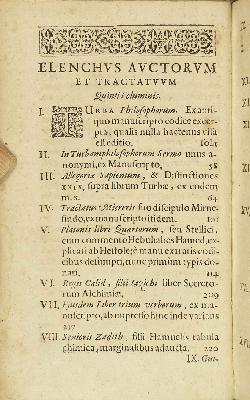 ELENCHVS AVCTORVM
ET TRACTATVVM
Quinti voluminis.
I. TURBA Philosophorum. Ex anti-
quo manuscripto codice excer-
pta, qualis nulla hactenus visa
est editio. fol. 1
II. In Turbam philosophorum Sermo unus a-
nonymi, ex Manuscripto. 58
III. Allegoriæ Sapientum, & Distinctiones
XXIX, supra librum Turbæ, ex eodem
m. s. 64
IV. Tractatus Micreris suo discipulo Mirne-
findo, ex manuscripto itidem. 101
V. Platonis libri Quartorum, seu Stellici,
cum commento Hebuhabes Hamed, ex-
plicati ab Hestole; è manu exaratis codi-
cibus desumpti, nunc primùm typis do-
nati. 114
VI. Regis Calid, filii Iazichi liber Secreto-
rum Alchimiæ. 209
VII. Ejusdem Liber trium verborum, ex ma-
nuscripto, ab impressio hinc inde varius
217
VIII. Senioris Zadith, filii Hamuelis tabula
chimica, marginalibus adaucta. 220
IX. Gui-